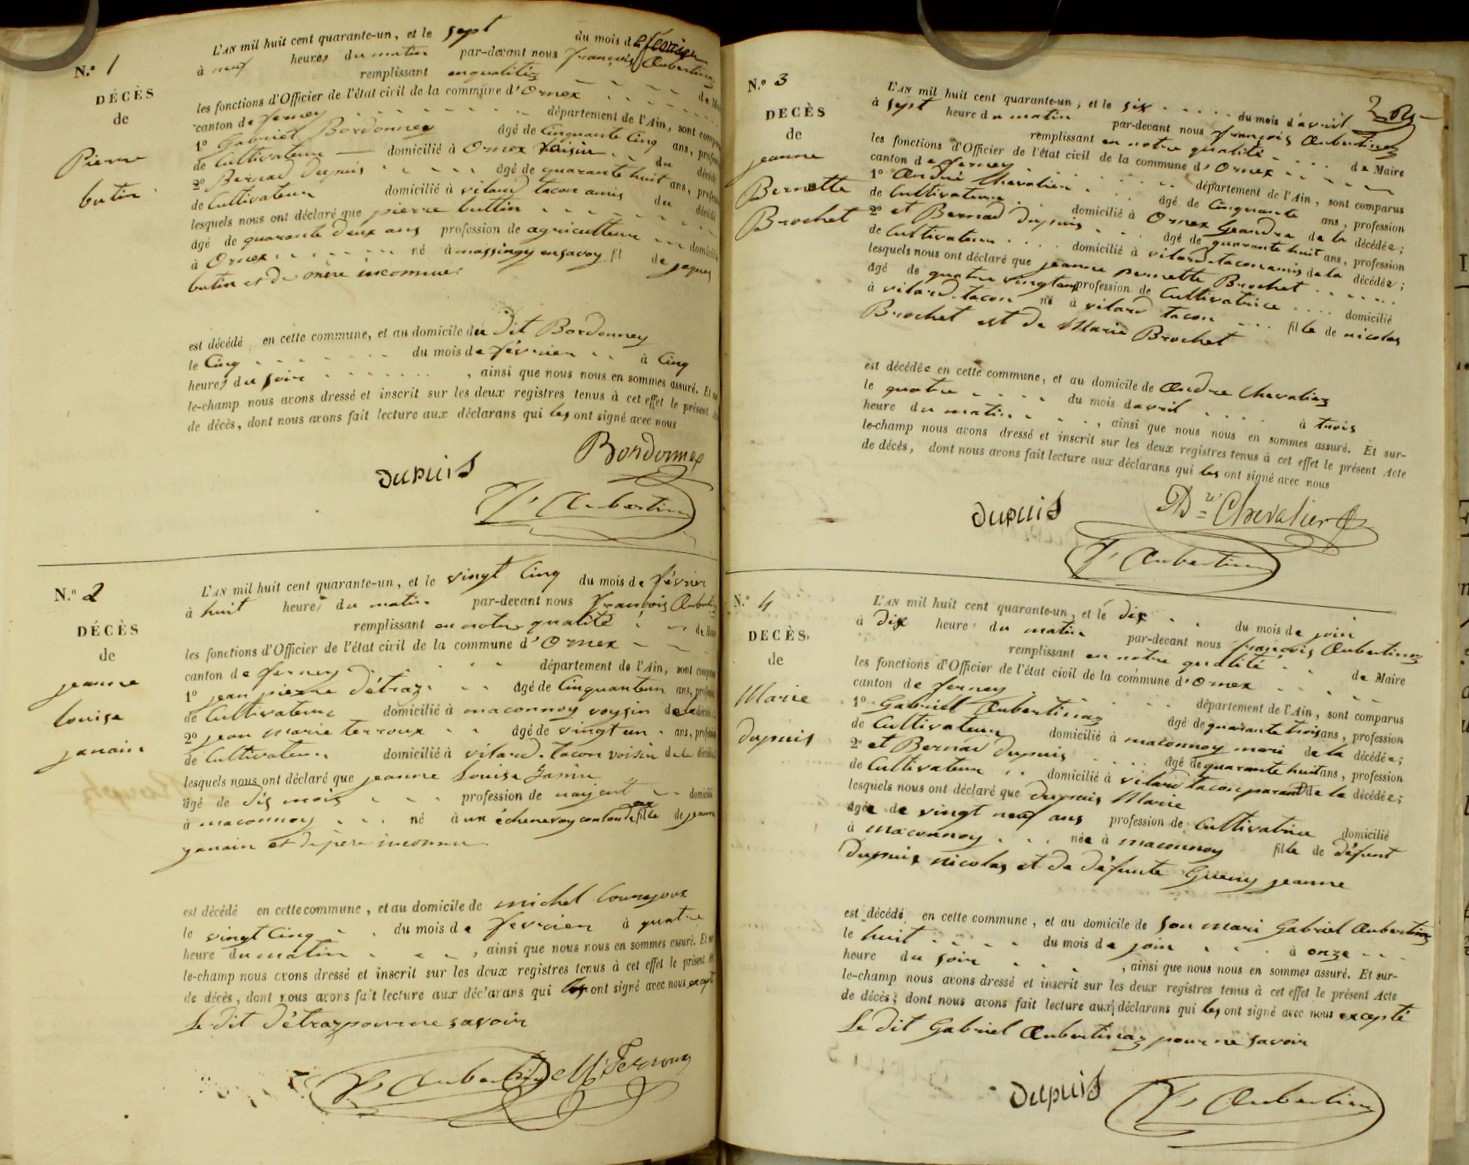 N.° 1
DÉCÈS
de
Pierre
butin
L'AN mil huit cent quarante-un, et le sept du mois de février
à neuf heures du matin par-devant nous françois Aubertinaz
remplissant en qualité de Maire
les fonctions d'Officier de l'état civil de la commune d'Ornex
canton de ferney département de l'Ain, sont comparus
1° Gabriel Bordonney âgé de cinquante cinq ans, profession
de cultivateur domicilié à Ornex voisin du décédé
2° Bernad Dupuis âgé de quarante huit ans, profession
de cultivateur domicilié à vilard tacon amis du décédé
lesquels nous ont déclaré que pierre buttin
âgé de quarante deux ans profession de agriculteur domicilié
à Ornex né à massingy en savoy fil de jaques
butin et de mère inconnue
est décédé en cette commune, et au domicile du dit Bordonney
le cinq du mois de février à cinq
heures du soir, ainsi que nous nous en sommes assuré. Et sur-
le-champ nous avons dressé et inscrit sur les deux registres tenus à cet effet le présent Acte
de décès, dont nous avons fait lecture aux déclarans qui les ont signé avec nous
Bordonney
DUPUIS
F. Aubertinaz
N.° 2
DÉCÈS
de
jeanne
louise
janain
L'AN mil huit cent quarante-un, et le vingt cinq du mois de février
à huit heures du matin par-devant nous françois Aubertinaz
remplissant en notre qualité de Maire
les fonctions d'Officier de l'état civil de la commune d'Ornex
canton de ferney département de l'Ain, sont comparus
1° jean pierre Détraz âgé de cinquanteun ans, profession
de cultivateur domicilié à maconnoy voysin de la décédée
2° jean marie terroux âgé de vingt un ans, profession
de cultivateur domicilié à vilard-tacon voisin de la décédée
lesquels nous ont déclaré que jeanne Louise Janin
âgé de dis mois profession de domicilié
à maconnoy né à un échenevoy canton de fille de jeanne
janain et de père inconnu
est décédé en cette commune, et au domicile de michel
le vingt cinq du mois de fevrier à quatre
heure du matin, ainsi que nous nous en sommes assuré. Et sur-
le-champ nous avons dressé et inscrit sur les deux registres tenus à cet effet le présent Acte
de décès, dont nous avons fait lecture aux déclarans qui les ont signé avec nous excepté
Le dit Détraz pour ne savoir
F. Aubertinaz JM Terroux
N.° 3
DÉCÈS
de
jeanne
Bernette
Brochet
L'AN mil huit cent quarante-un, et le six du mois d'avril
à sept heure du matin par-devant nous françois Aubertinaz
remplissant en notre qualité de Maire
les fonctions d'Officier de l'état civil de la commune d'Ornex
canton de ferney département de l'Ain, sont comparus
1° André Chevalier âgé de cinquante ans, profession
de cultivateur domicilié à Ornex Geandre de la décédée;
2° et Bernad Dupuis âgé de quarante huit ans, profession
de cultivateur domicilié à vilard-tacon amis de la décédée;
lesquels nous ont déclaré que jeanne pernette Brochet
âgé de quatre vingt ans profession de cultivatrice domicilié
à vilard-tacon né à vilard tacon fille de nicolas
Brochet est de Marie Brochet
est décédée en cette commune, et au domicile de Andre Chevalier
le quatre du mois d'avril à trois
heure du matin, ainsi que nous nous en sommes assuré. Et sur-
le-champ nous avons dressé et inscrit sur les deux registres tenus à cet effet le présent Acte
de décès, dont nous avons fait lecture aux déclarans qui les ont signé avec nous
DUPUIS
Dré Chevalier
F. Aubertinaz
N.° 4
DÉCÈS
de
Marie
dupuis
L'AN mil huit cent quarante-un, et le dix du mois de join
à dix heure du matin par-devant nous françois Aubertinaz
remplissant en notre qualité de Maire
les fonctions d'Officier de l'état civil de la commune d'Ornex
canton de ferney département de l'Ain, sont comparus
1° Gabriel Aubertinaz âgé de quarante trois ans, profession
de cultivateur domicilié à maconnoy mari de la décédée;
2° et Bernad Dupuis âgé de quarante huit ans, profession
de cultivateur domicilié à vilard tacon parant de la décédée;
lesquels nous ont déclaré que dupuis Marie
âgée de vingt neuf ans profession de cultivatrice domicilié
à maconnoy née à maconnoy fille de défunt
Dupuis nicolas et de défunte Gueny jeanne
est décédé en cette commune, et au domicile de son mari Gabriel Aubertinaz
le huit du mois de join à onze
heure du soir, ainsi que nous nous en sommes assuré. Et sur-
le-champ nous avons dressé et inscrit sur les deux registres tenus à cet effet le présent Acte
de décès; dont nous avons fait lecture aux déclarans qui les ont signé avec nous excepté
Le dit Gabriel Aubertinaz pour ne savoir
DUPUIS
F. Aubertinaz